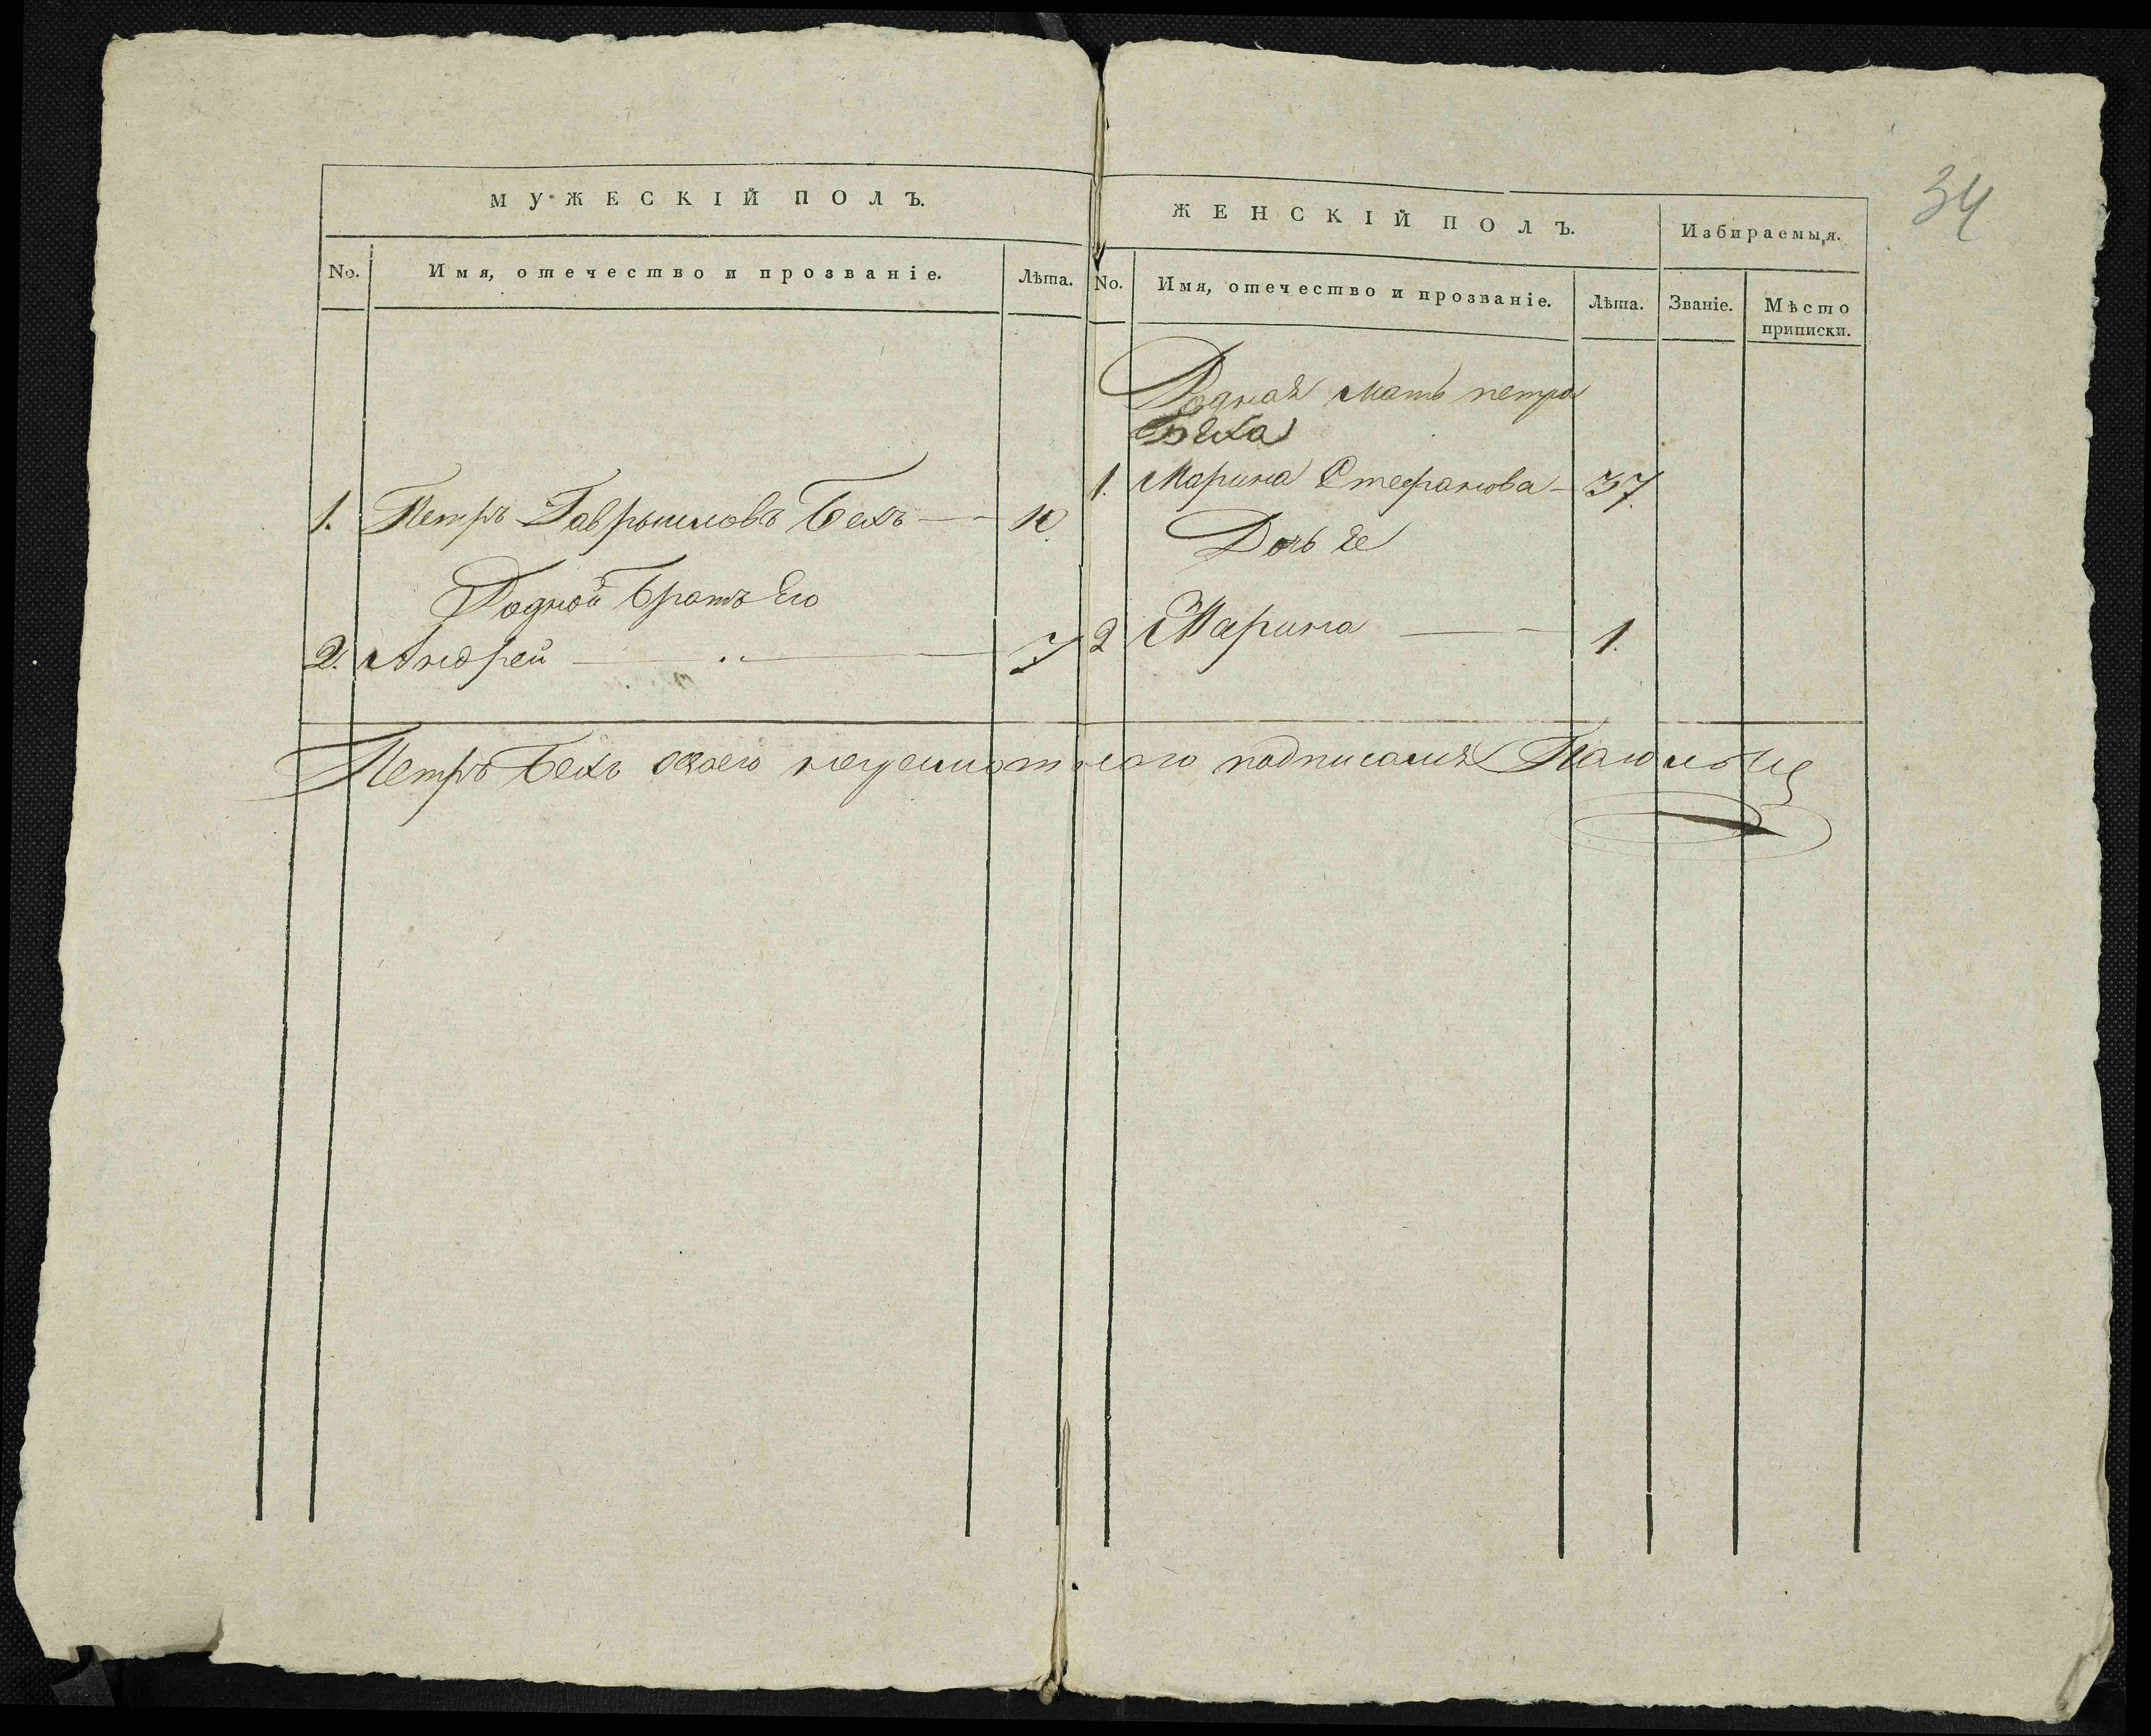 34
МУЖЕСКІЙ ПОЛЪ.
No. Имя, отечество и прозваніе. Лѣта.
1. Петръ Гаврышовъ Бехъ — 10.
Родной братъ Его
2. Андрей — 7
ЖЕНСКІЙ ПОЛЪ. Избираемыя.
No. Имя, отечество и прозваніе. Лѣта. Званіе. Мѣсто
приписки.
Родная мать петра
Беха
1. Марина Стефанова — 37.
Дочь Ее
2 Марина — 1.
Петръ Бехъ